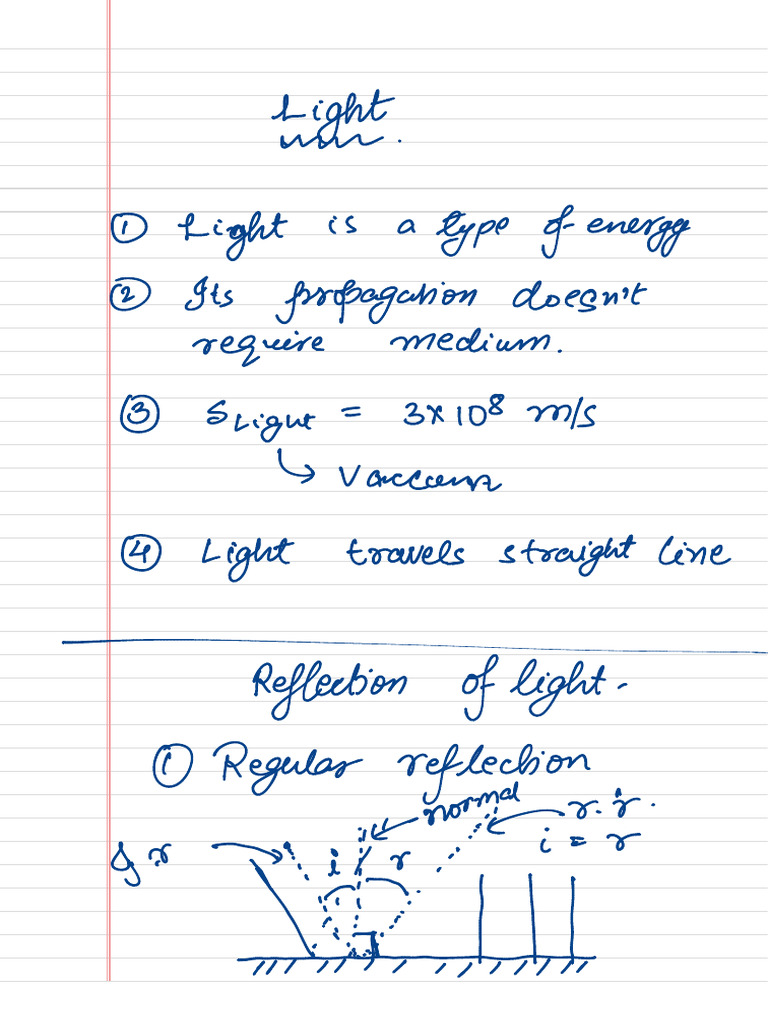 Light
① Light is a type of energy
② Its propagation doesn't
require medium.
③ S Light = 3×10⁸ m/s
④ Light travels straight line
Reflection of light.
① Regular reflection
normal
r.r.
i = r
i r